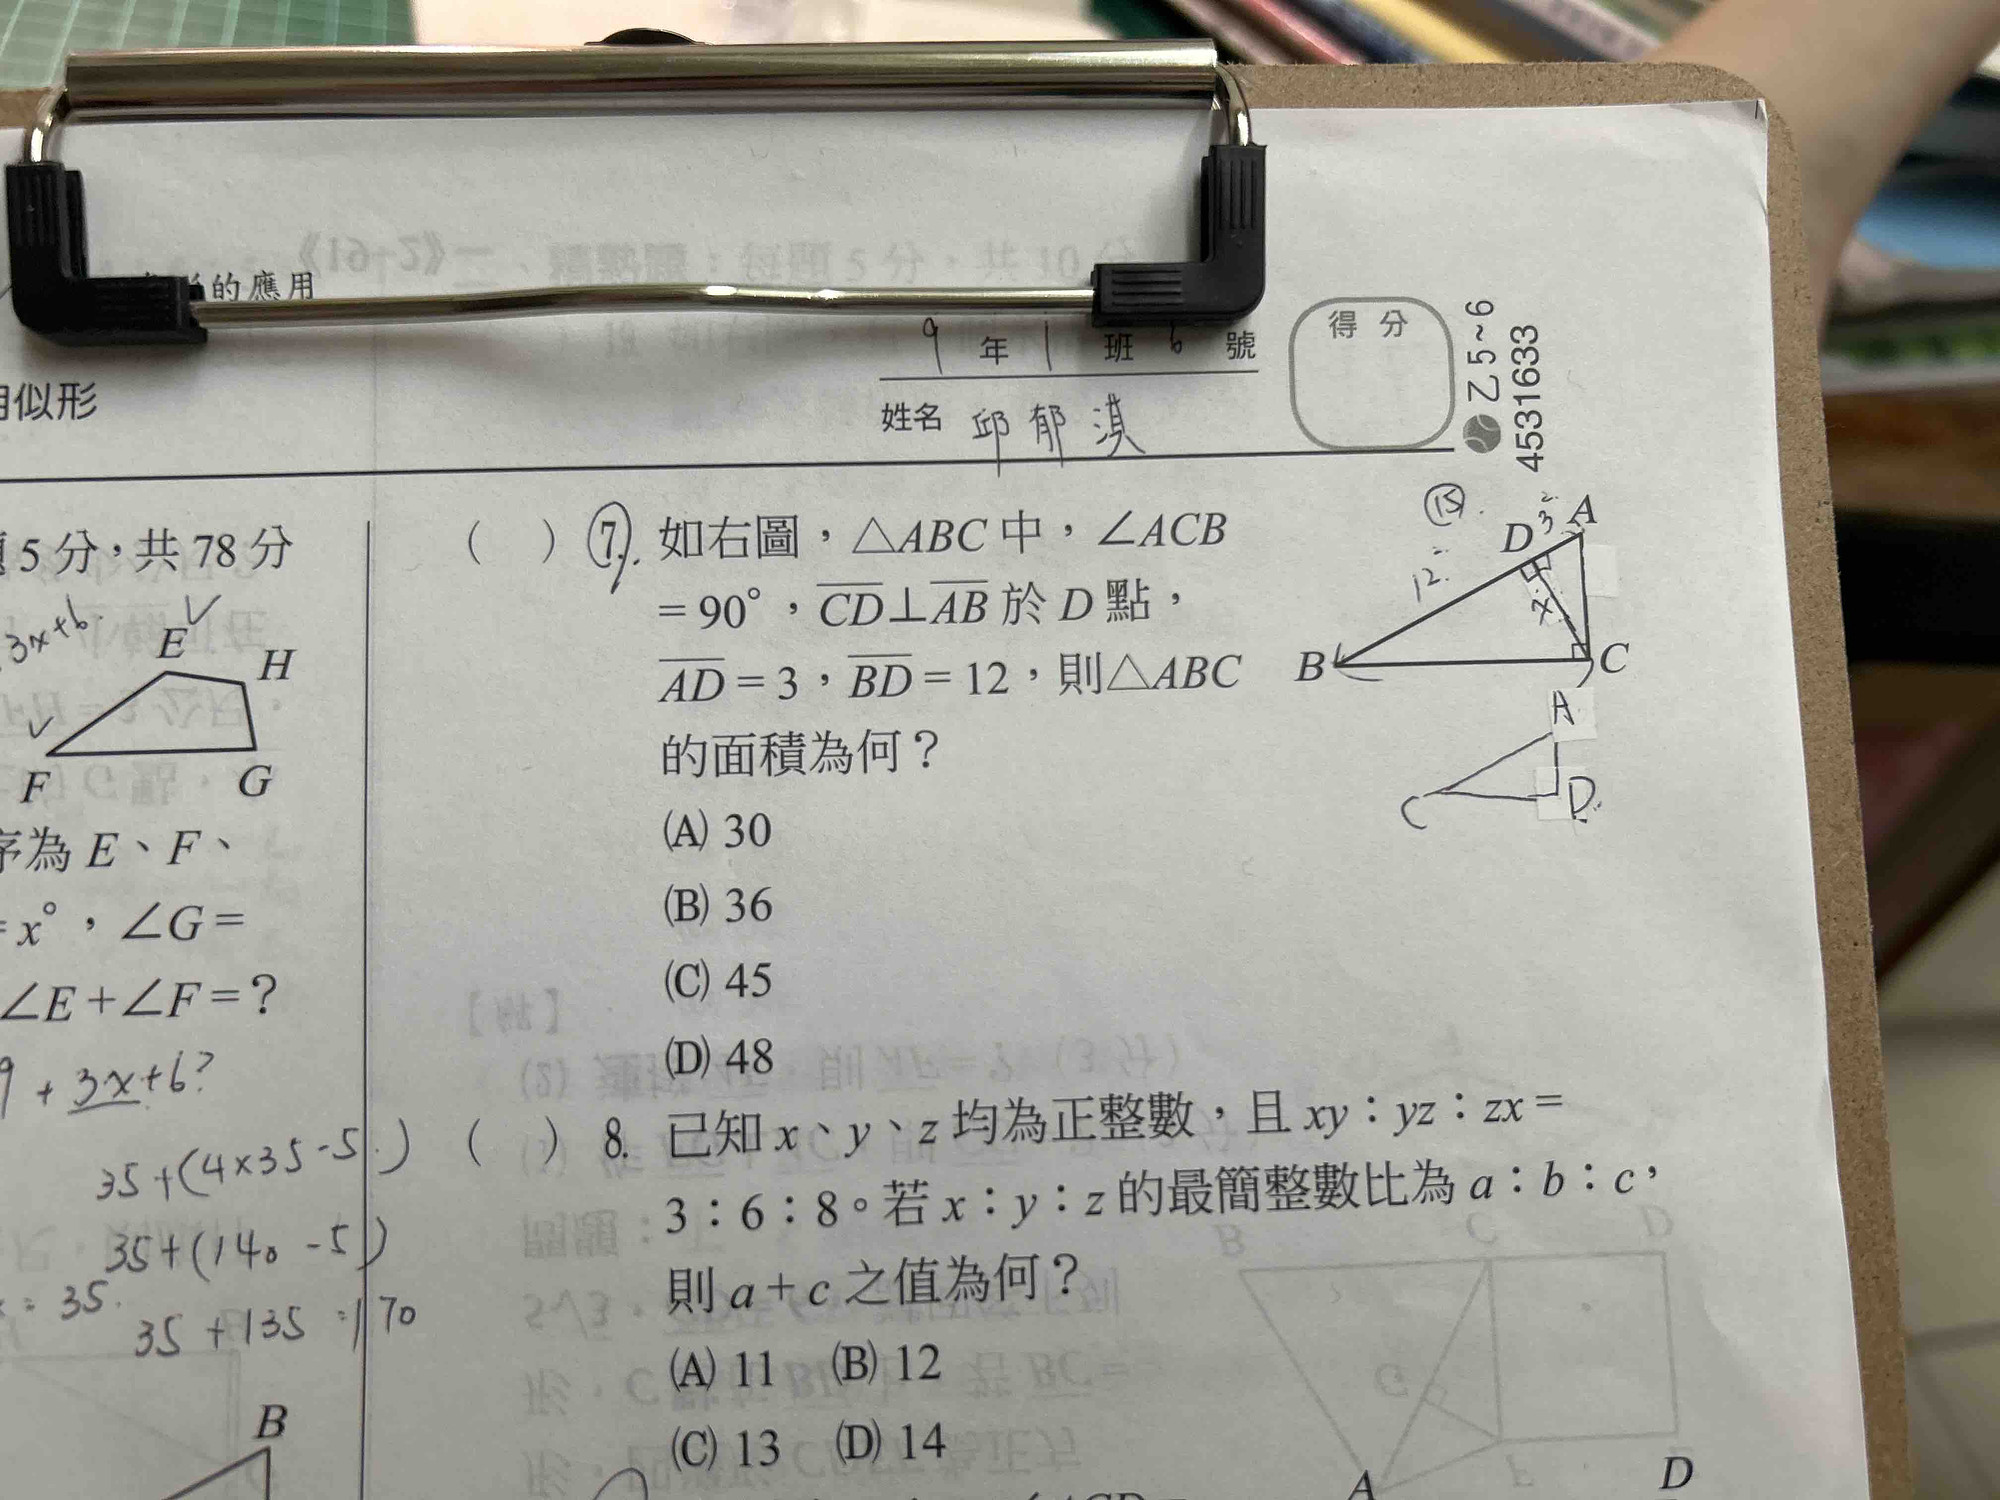 的應用
《2-16》
二、精熟題：每題5分，共10分
9 年 1 班 6 號
得 分
姓名 邱郁淇
乙5~6
4531633
似形
5分，共78分
3x+6
E
H
F
G
序為E、F、
=x°，∠G=
∠E+∠F=？
9+3x+6?
35+(4×35-5)
35+(140-5)
x=35.
35+135=170
B
( ) 7. 如右圖，△ABC中，∠ACB
=90°，CD⊥AB於D點，
AD=3，BD=12，則△ABC
的面積為何？
(A) 30
(B) 36
(C) 45
(D) 48
15
12
D
3
A
x
B
C
A
C
D
( ) 8. 已知x、y、z均為正整數，且xy：yz：zx=
3：6：8。若x：y：z的最簡整數比為a：b：c，
則a+c之值為何？
(A) 11 (B) 12
(C) 13 (D) 14
A
D